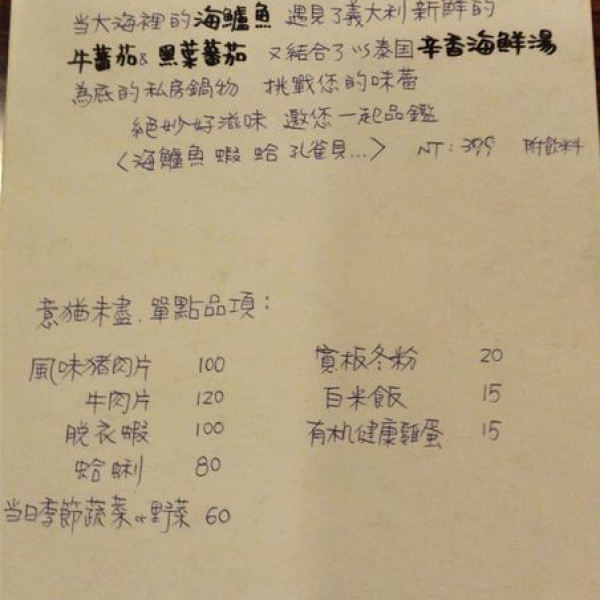 当大海裡的海鱸魚 遇見了義大利新鮮的
牛蕃茄&黑葉蕃茄 又結合了以泰国辛香海鮮湯
為底的私房鍋物 挑戰您的味蕾
絕妙好滋味 邀您一起品鑑
<海鱸魚 蝦 蛤 孔雀貝...> NT:399 附飲料
意猶未盡.單點品項:
風味豬肉片 100 寬板冬粉 20
牛肉片 120 白米飯 15
脫衣蝦 100 有机健康雞蛋 15
蛤蜊 80
当日季節蔬菜or野菜 60